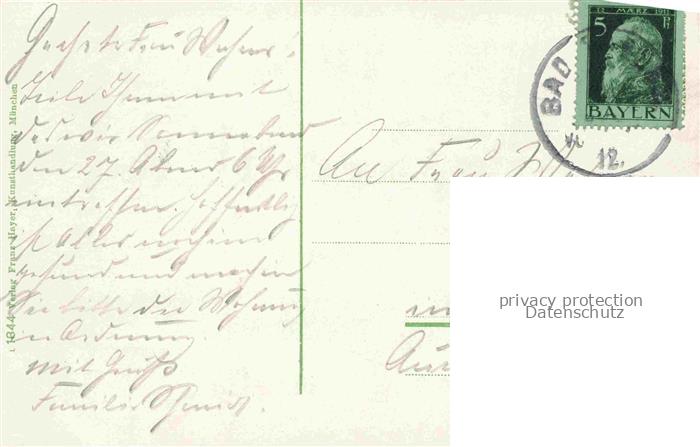 Geehrte Frau
Teile Ihnen mit
das wir Sonnabend
den 27. Abend 6 Uhr
eintreffen. hoffentlich
ist Alles noch
gesund und machen
Sie bitte die Wohnung
in Ordnung.
mit Gruß
Familie Schmidt.
1344 Verlag Franz Heyer, Kunsthandlung, München
12 MÄRZ 1911
5 Pf
BAYERN
BAD
12.
An Frau
in
privacy protection
Datenschutz